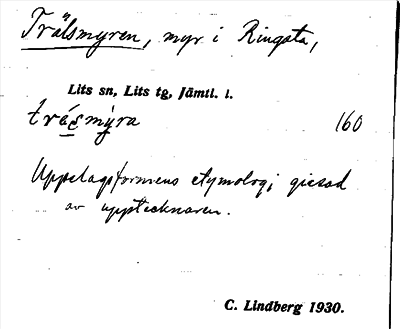 Trälsmyren, myr i Ringsta,
Lits sn, Lits tg, Jämtl. l.
tråsmyra 160
Uppslagsformens etymologi gissad
av upptecknaren.
C. Lindberg 1930.